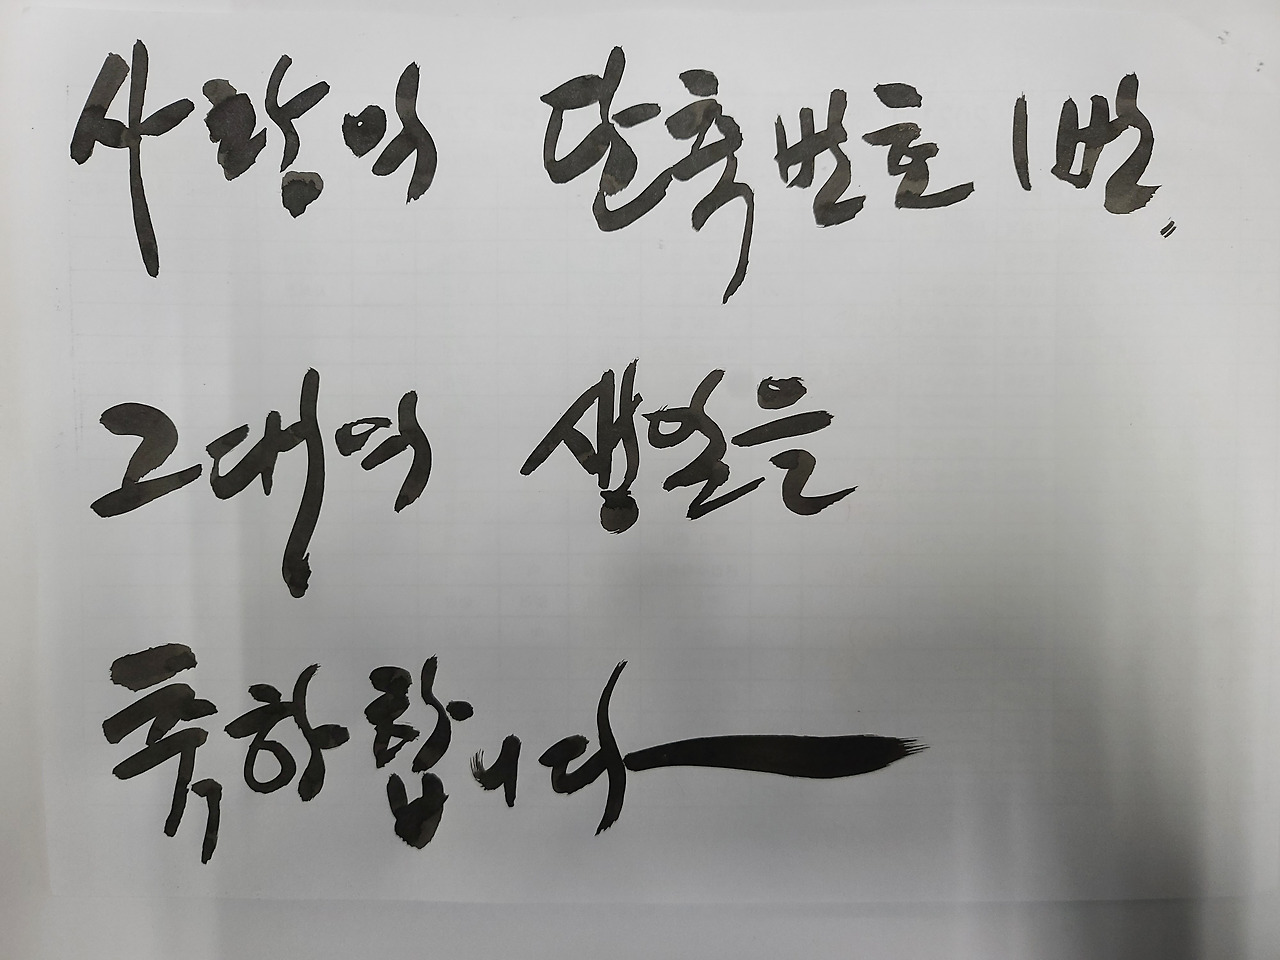 사랑의 단축번호 1번.
그대의 생일을
축하합니다